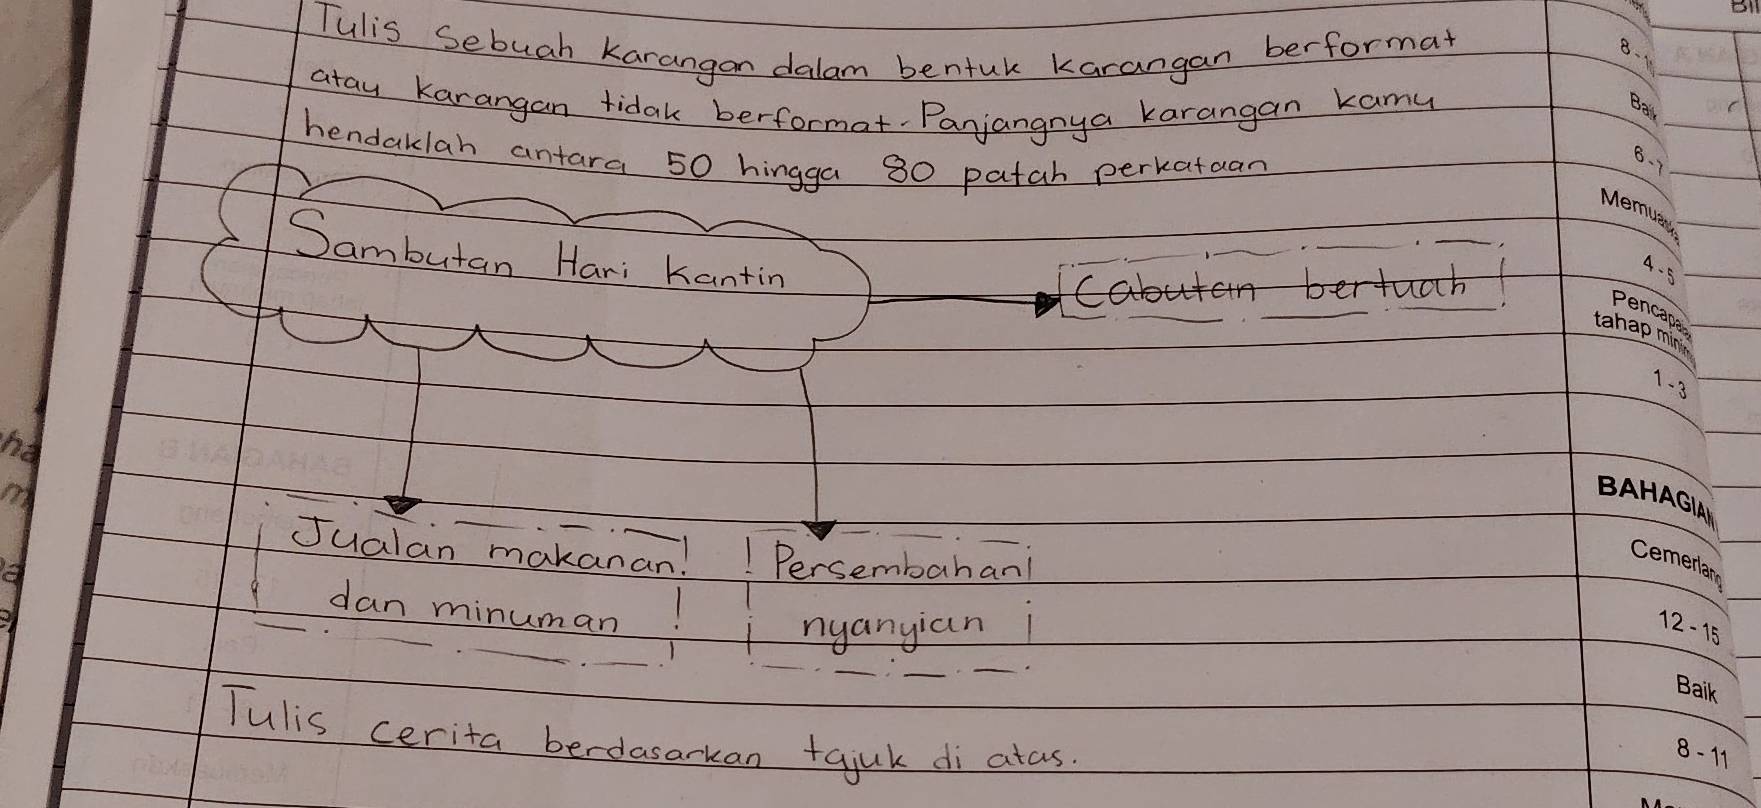 Tulis Sebuah Karangan dalam bentuk karangan berformat
atau karangan tidak berformat. Panjangnya karangan kamu
hendaklah antara 50 hingga 80 patah perkataan
Sambutan Hari Kantin
Cabutan bertuah
Jualan makanan
dan minuman
Persembahan
nyanyian
Tulis cerita berdasarkan tajuk di atas.
8-
6-7
4-5
tahap
1-3
BAHAGIAN
Cemerlang
12-15
Baik
8-11